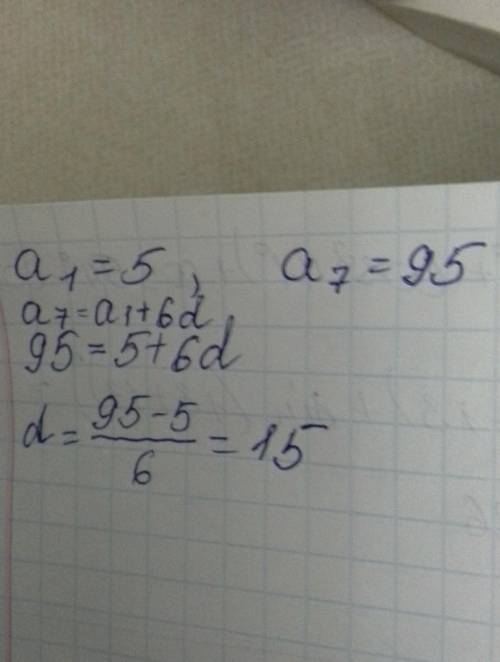 a₁ = 5, a₇ = 95
a₇ = a₁ + 6d
95 = 5 + 6d
d = (95 - 5)/6 = 15